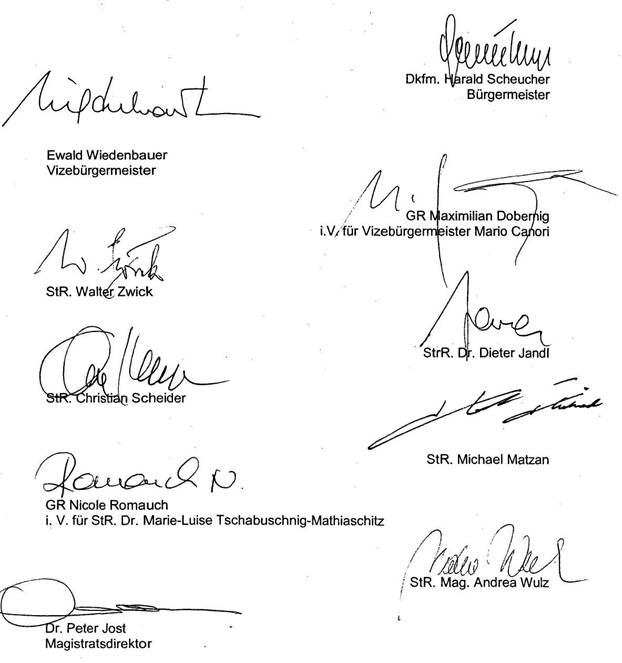 Dkfm. Harald Scheucher
Bürgermeister
Ewald Wiedenbauer
Vizebürgermeister
GR Maximilian Dobernig
i.V. für Vizebürgermeister Mario Canori
StR. Walter Zwick
StrR. Dr. Dieter Jandl
StR. Christian Scheider
StR. Michael Matzan
Romauch N.
GR Nicole Romauch
i. V. für StR. Dr. Marie-Luise Tschabuschnig-Mathiaschitz
StR. Mag. Andrea Wulz
Dr. Peter Jost
Magistratsdirektor